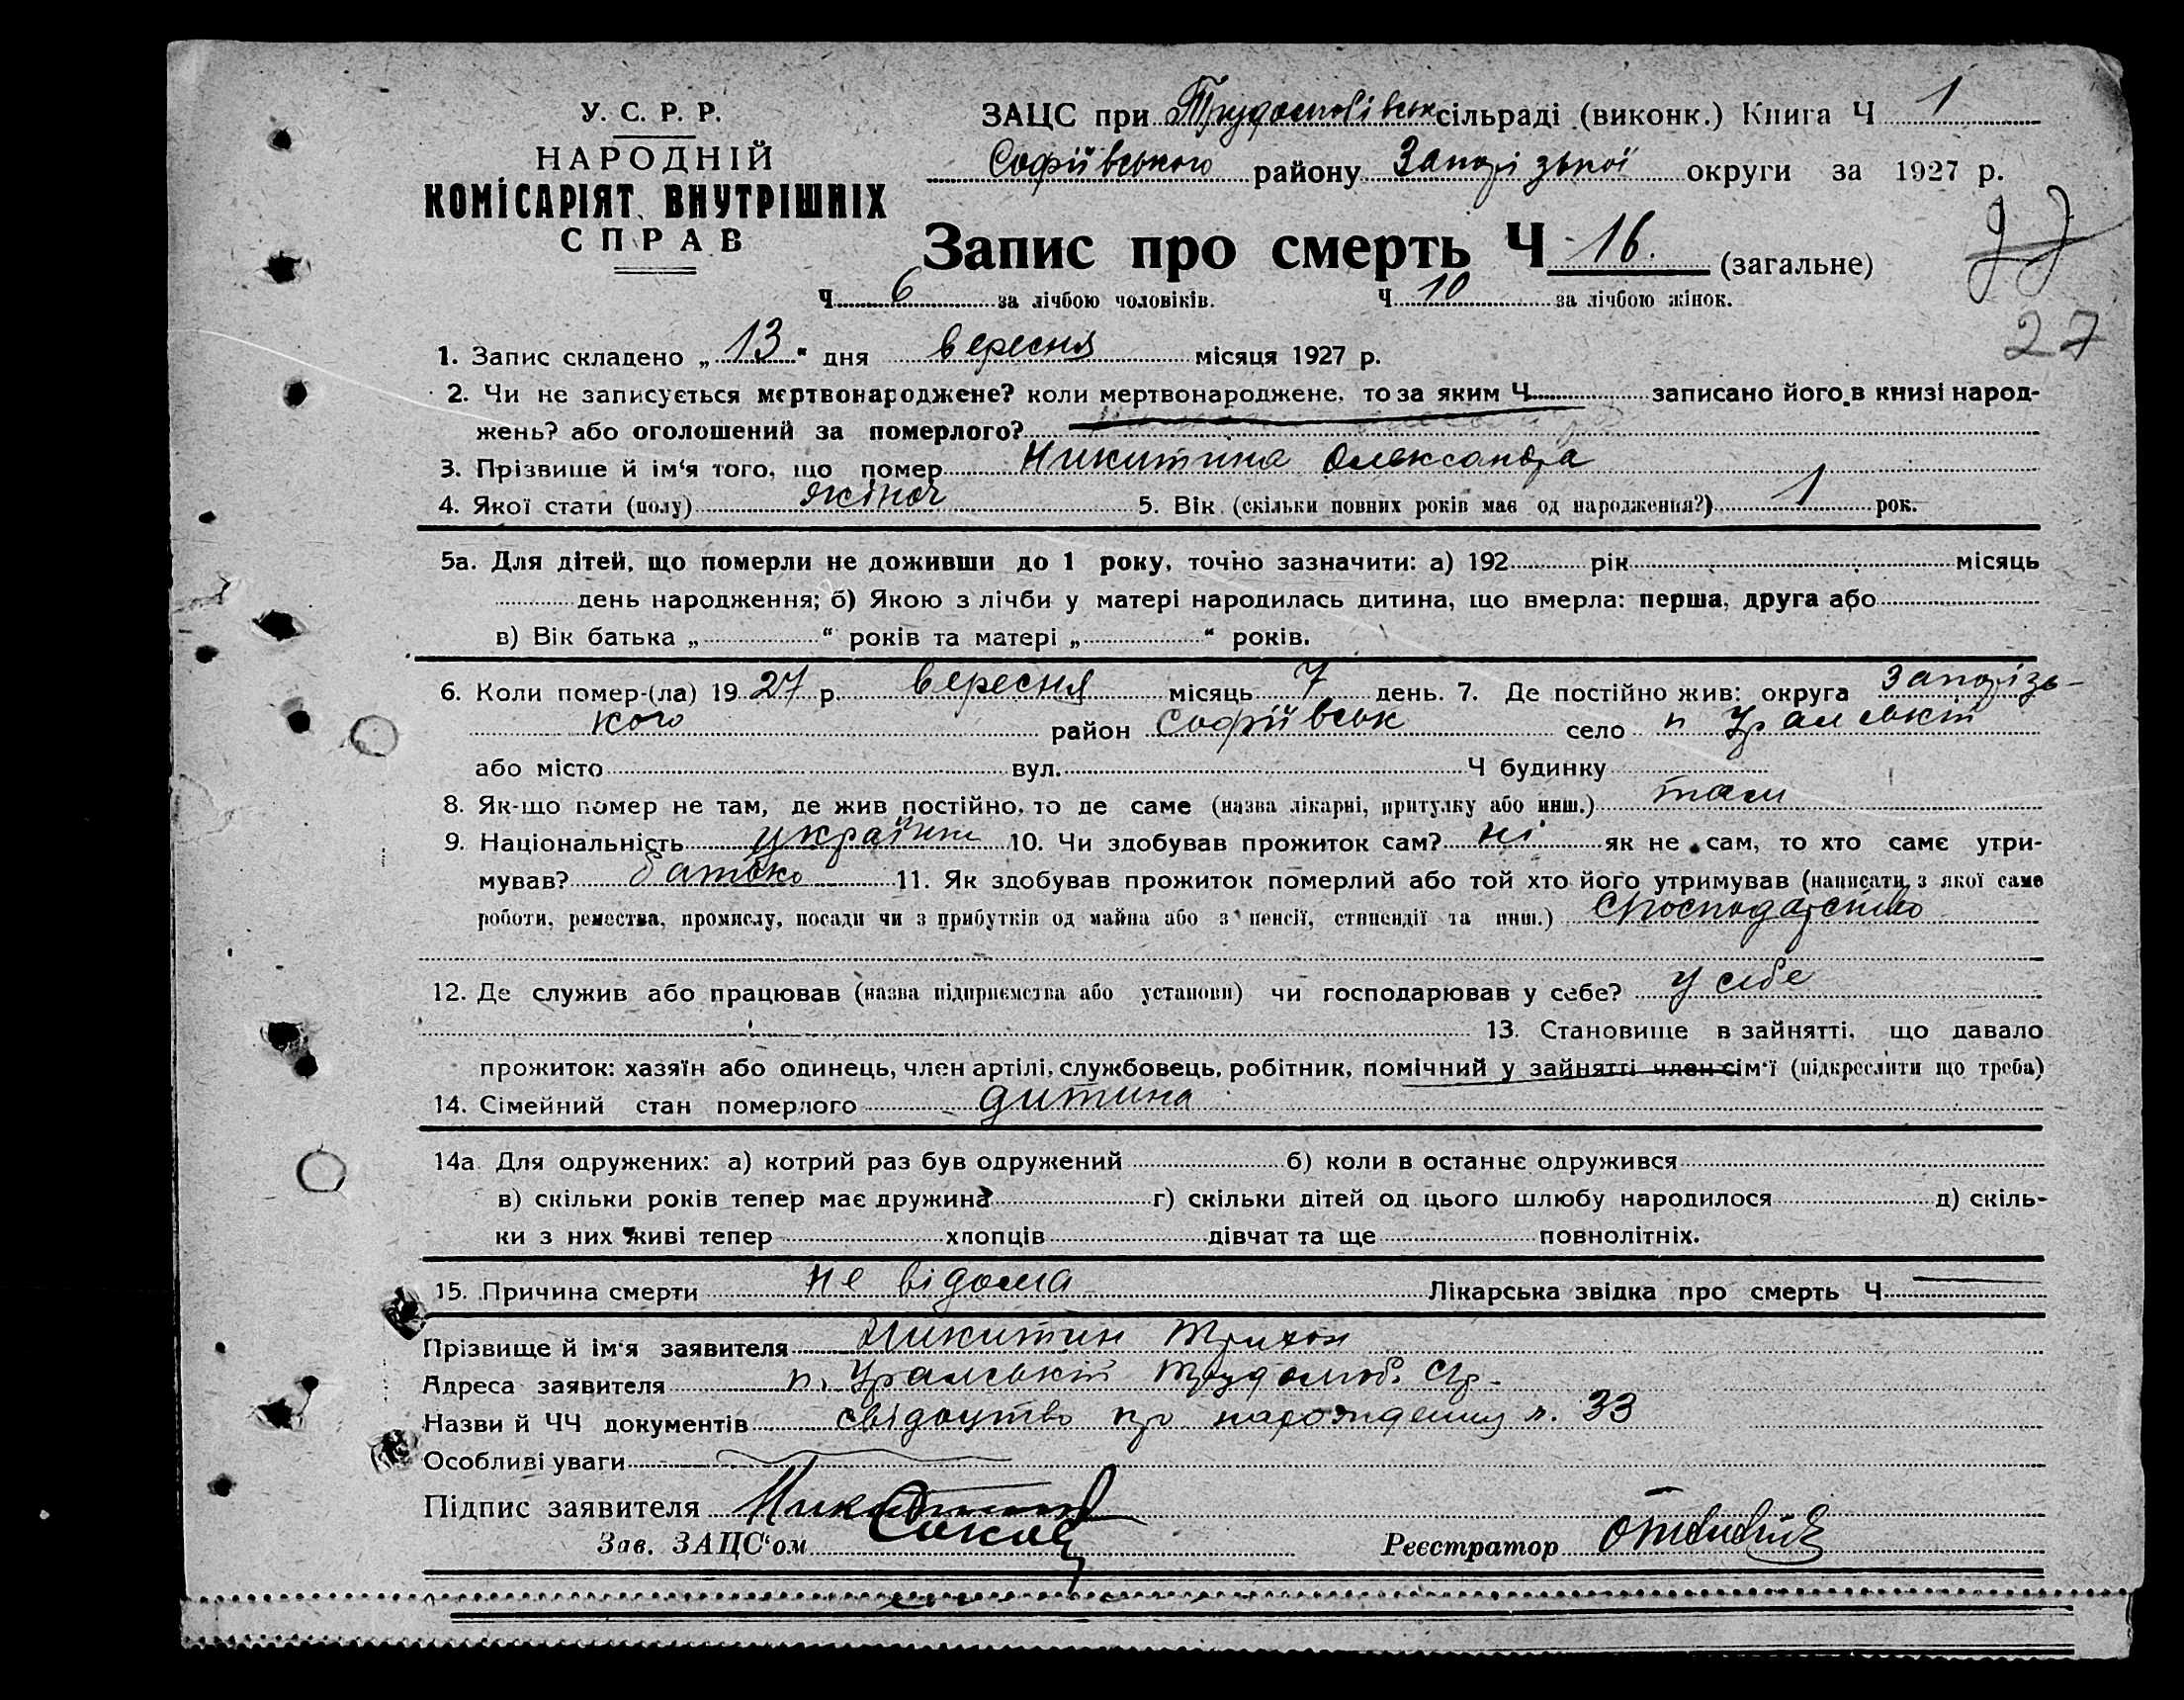 У. С. Р. Р.
НАРОДНІЙ
КОМІСАРІЯТ ВНУТРІШНІХ
СПРАВ
ЗАЦС при сільраді (виконк.) Книга Ч 1
Софіївського району Запорізької округи за 1927 р.
Запис про смерть Ч 16. (загальне)
Ч 6 за лічбою чоловіків. Ч 10 за лічбою жінок.
27
1. Запис складено „13“ дня вересня місяця 1927 р.
2. Чи не записується мертвонароджене? коли мертвонароджене, то за яким Ч записано його в книзі народ-
жень? або оголошений за померлого?
3. Прізвище й ім‘я того, що помер Никитина Олександра
4. Якої стати (полу) жіноч 5. Вік (скільки повних років має од народження?) 1 рок.
5а. Для дітей, що померли не доживши до 1 року, точно зазначити: а) 192 рік місяць
день народження; б) Якою з лічби у матері народилась дитина, що вмерла: перша, друга або
в) Вік батька „ “ років та матері „ “ років.
6. Коли помер-(ла) 1927 р. вересня місяць 7 день. 7. Де постійно жив: округа Запорізь-
кого район Софіївськ село п Уральскій
або місто вул. Ч будинку
8. Як-що помер не там, де жив постійно, то де саме (назва лікарні, притулку або инш.) там
9. Національність україн 10. Чи здобував прожиток сам? ні як не сам, то хто саме утри-
мував? батько 11. Як здобував прожиток померлий або той хто його утримував (написати з якої саме
роботи, ремества, промислу, посади чи з прибутків од майна або з пенсії, стипендії та инш.)
12. Де служив або працював (назва підприємства або установи) чи господарював у себе? у себе
13. Становище в зайнятті, що давало
прожиток: хазяїн або одинець, член артілі, службовець, робітник, помічний у зайнятті член сім‘ї (підкреслити що треба)
14. Сімейний стан померлого дитина
14а. Для одружених: а) котрий раз був одружений б) коли в останнє одружився
в) скільки років тепер має дружина г) скільки дітей од цього шлюбу народилося д) скіль-
ки з них живі тепер хлопців дівчат та ще повнолітніх.
15. Причина смерти не відома Лікарська звідка про смерть Ч
Прізвище й ім‘я заявителя Никитин
Адреса заявителя п. Уральскій
Назви й ЧЧ документів свідоцтво про 33
Особливі уваги
Підпис заявителя Никитин
Зав. ЗАЦС‘ом
Реєстратор